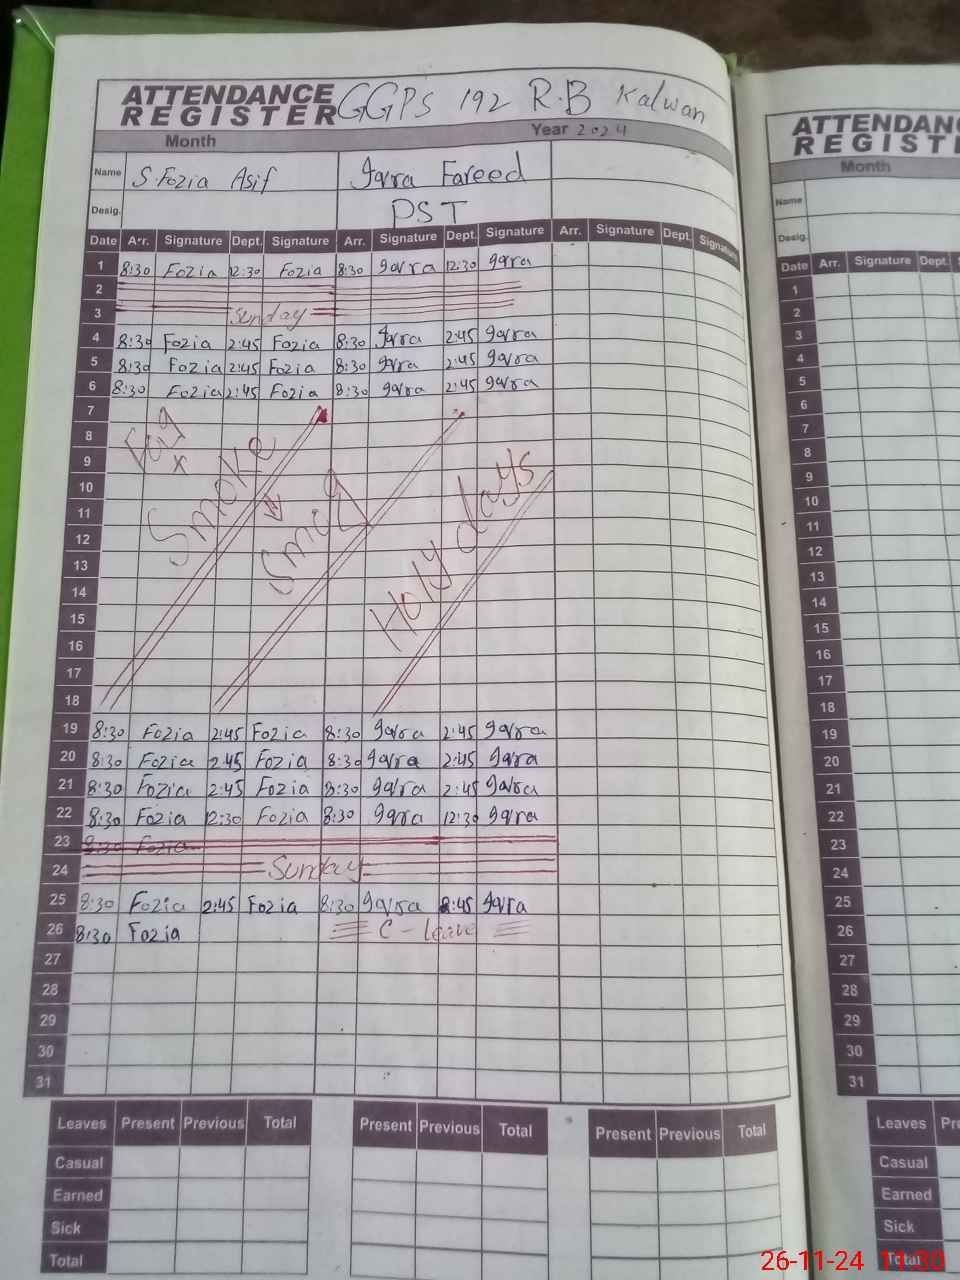 ATTENDANCE REGISTER GGPS 192 R.B Kalwan
Month Year 2024
Name S.Fozia Asif Iqra Fareed
Desig. PST
Date Arr. Signature Dept. Signature Arr. Signature Dept. Signature Arr. Signature Dept. Signature
1 8:30 Fozia 12:30 Fozia 8:30 Iqra 12:30 Iqra
2
3 Sunday
4 8:30 Fozia 2:45 Fozia 8:30 Iqra 2:45 Iqra
5 8:30 Fozia 2:45 Fozia 8:30 Iqra 2:45 Iqra
6 8:30 Fozia 2:45 Fozia 8:30 Iqra 2:45 Iqra
7
8
9
10
11
12
13
14
15
16
17
18
Fog x
Smoke
Smog
Holy days
19 8:30 Fozia 2:45 Fozia 8:30 Iqra 2:45 Iqra
20 8:30 Fozia 2:45 Fozia 8:30 Iqra 2:45 Iqra
21 8:30 Fozia 2:45 Fozia 8:30 Iqra 2:45 Iqra
22 8:30 Fozia 12:30 Fozia 8:30 Iqra 12:30 Iqra
23 8:30 Fozia
24 Sunday
25 8:30 Fozia 2:45 Fozia 8:30 Iqra 2:45 Iqra
26 8:30 Fozia C - Leave
27
28
29
30
31
Leaves Present Previous Total Present Previous Total Present Previous Total
Casual
Earned
Sick
Total
ATTENDANC
REGIST
Month
Name
Desig.
Date Arr. Signature Dept. S
1
2
3
4
5
6
7
8
9
10
11
12
13
14
15
16
17
18
19
20
21
22
23
24
25
26
27
28
29
30
31
Leaves Pre
Casual
Earned
Sick
Total
26-11-24 11:30